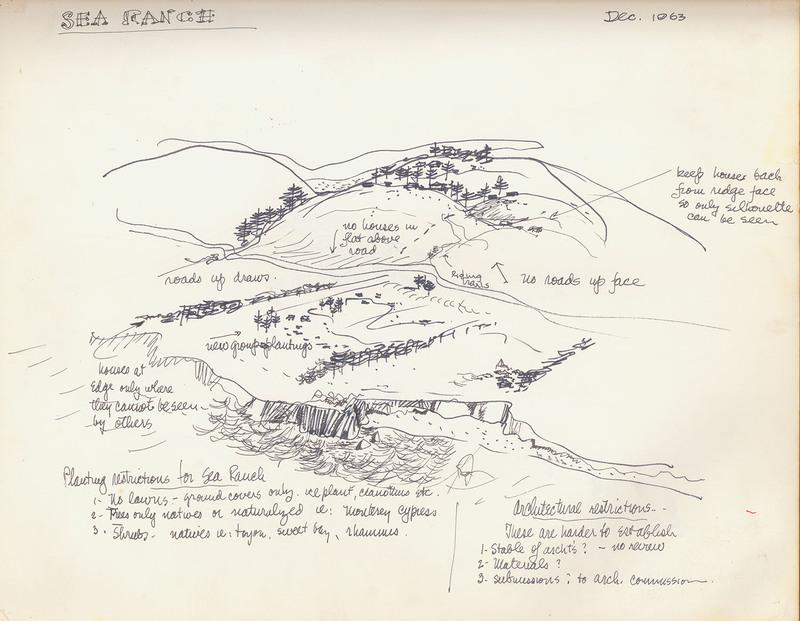 SEA RANCH
Dec. 1963
keep houses back
from ridge face
so only silhouette
can be seen
no houses in
flat above
road
roads up draws.
riding
trails
No roads up face
new group plantings
houses at
edge only where
they cannot be seen
by others
Planting restrictions for Sea Ranch
1- No lawns - ground covers only. ice plant, cianothus etc.
2- Trees only natives or naturalized ie: Monterey Cypress
3. Shrubs- natives ie: toyon, sweet bay, rhamnus.
Architectural restrictions..-
These are harder to establish
1- Stable of archts? - no review
2- Materials?
3- submissions? to arch. commission.